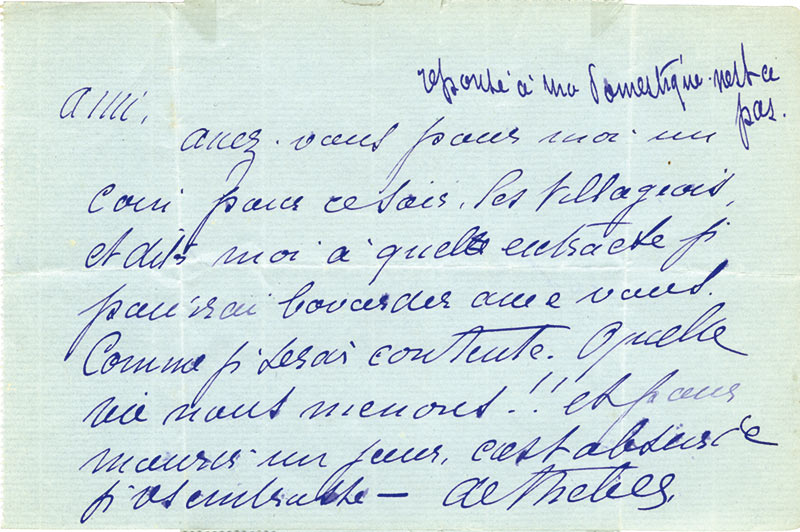 reponse à ma domestique. n'est ce
pas.
ami,
avez-vous pour moi un
coin pour ce soir. les Villageois,
et dites moi à quel entracte je
pourrai bavarder avec vous.
Comme je serai contente. Quelle
vie nous menons!! et pour
mourir un jour. c'est absurde
je vs embrasse — de Thebes.